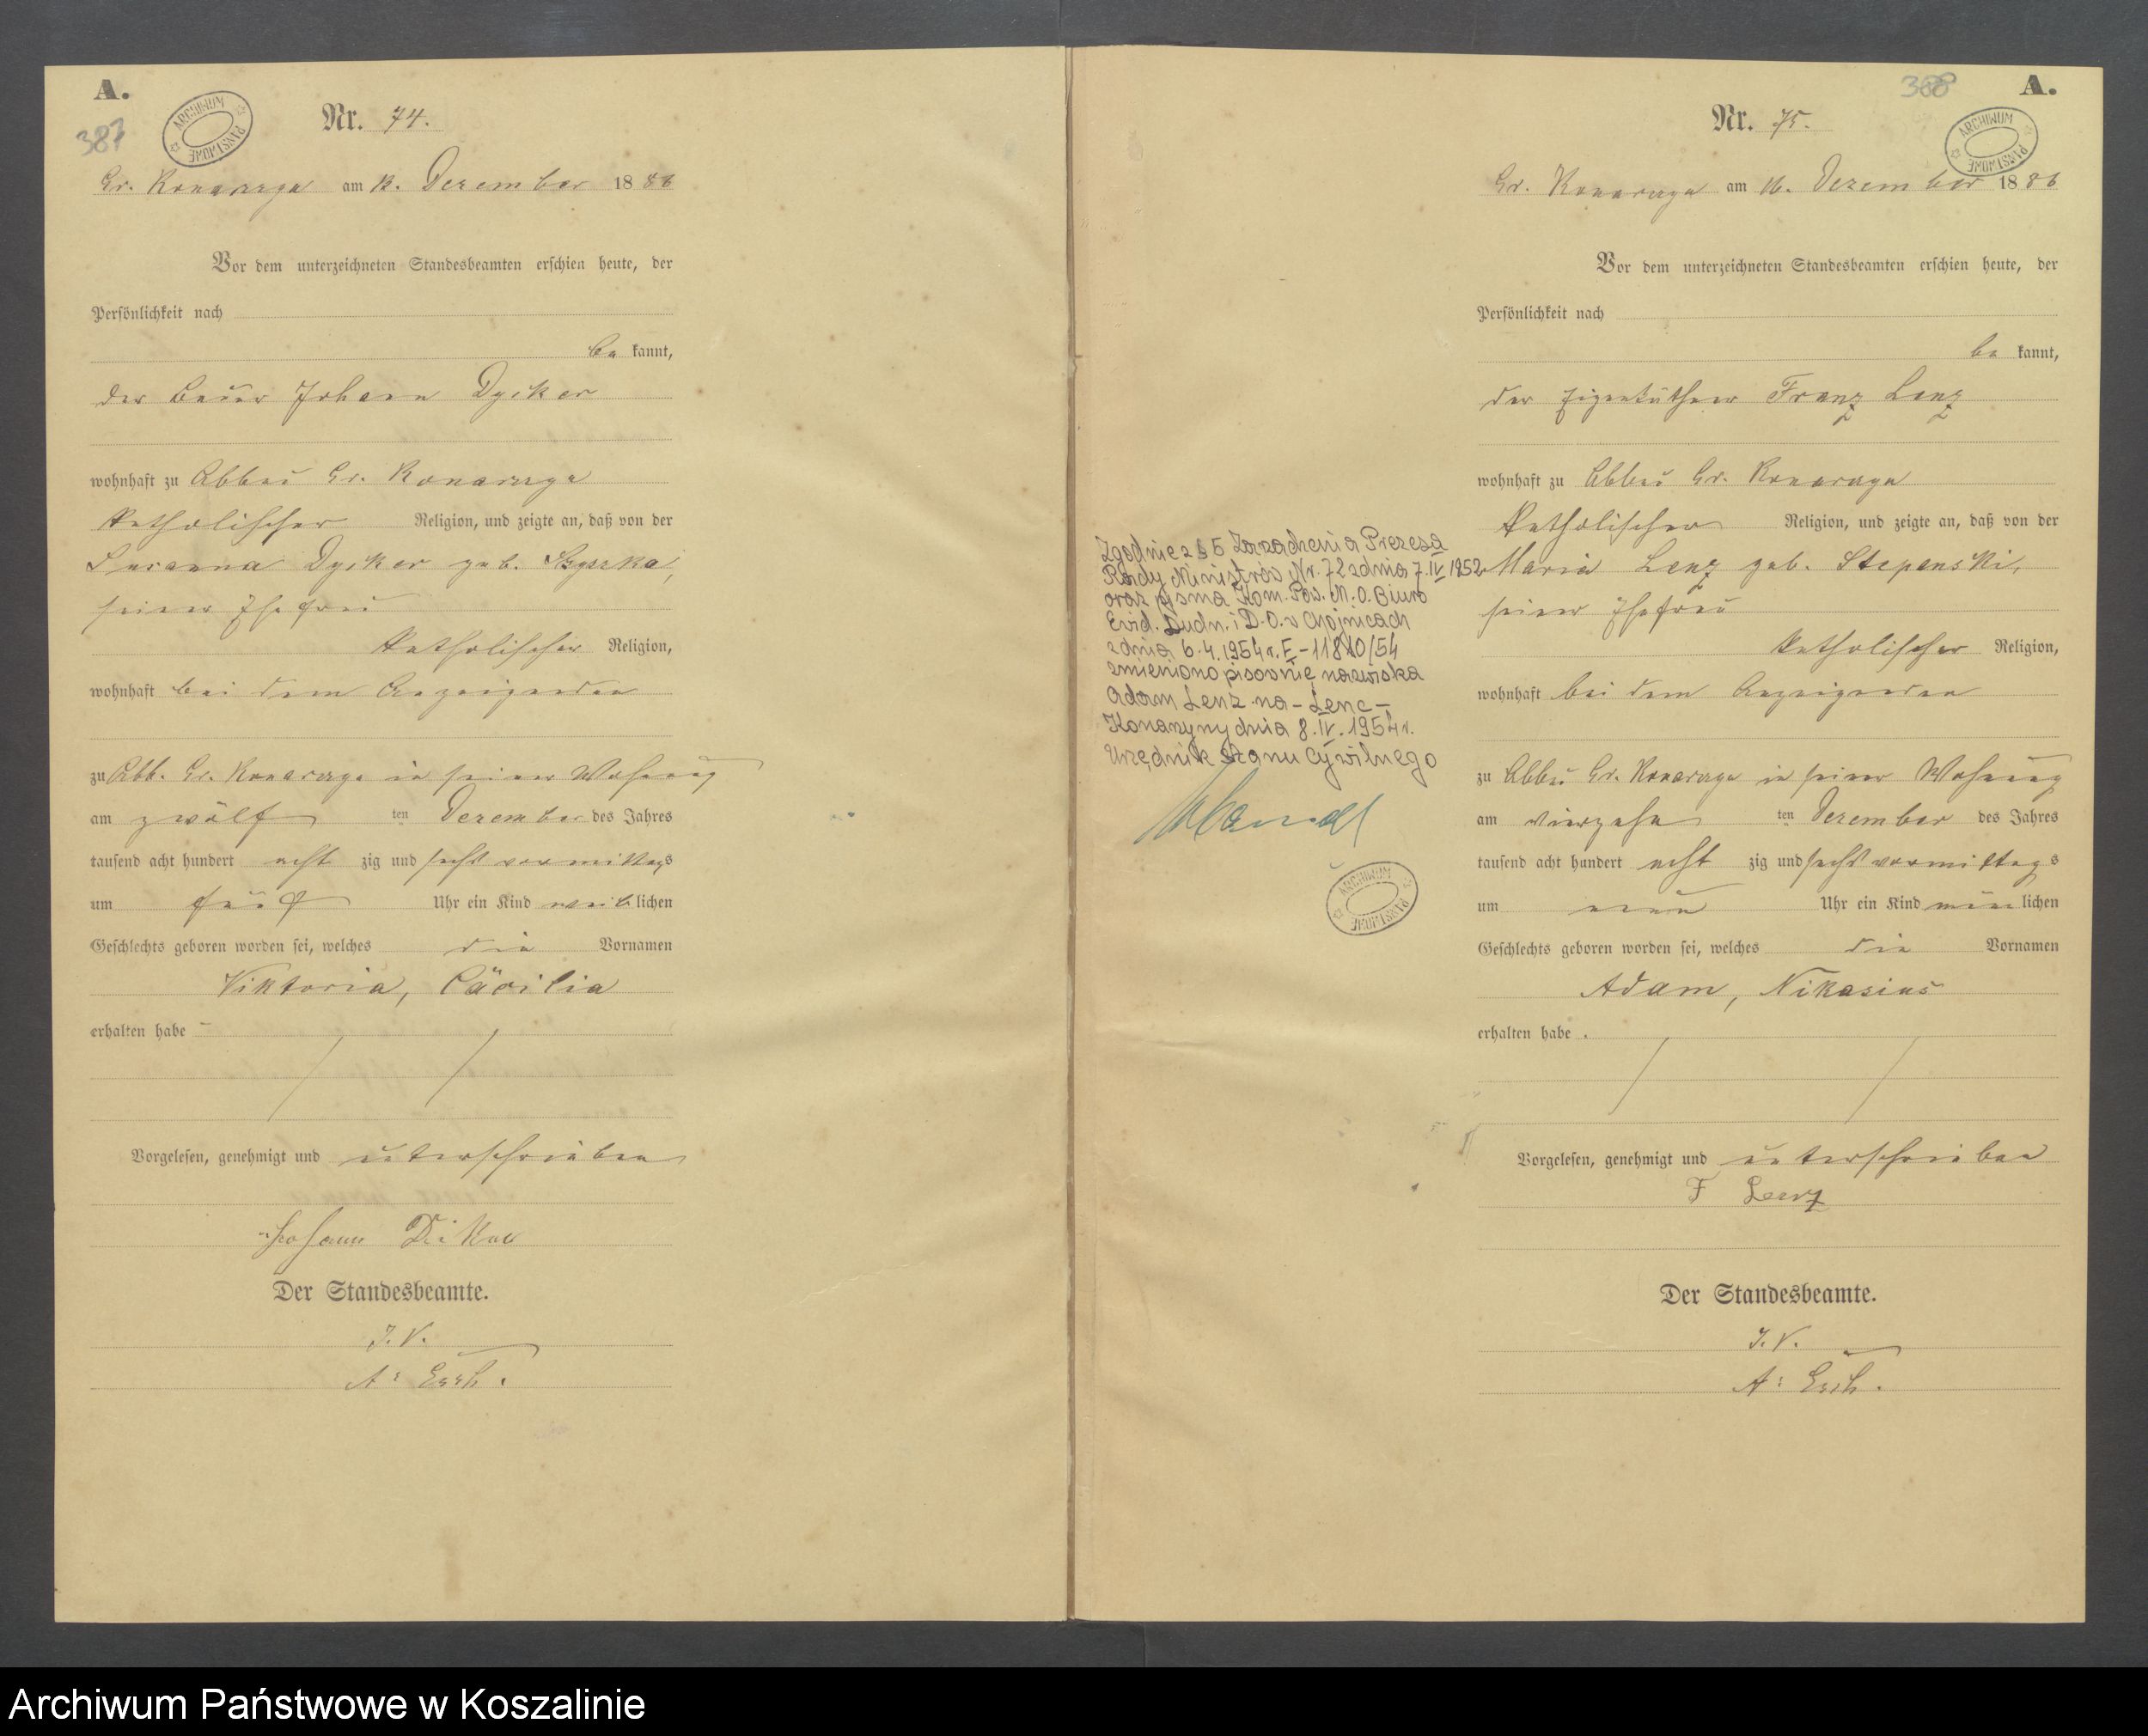 A.
387
ARCHIWUM PAŃSTWOWE
Nr. 74.
Gr. Konarczyn am 12. Dezember 1886
Vor dem unterzeichneten Standesbeamten erschien heute, der
Persönlichkeit nach
be kannt,
der Bauer Johann Dycker
wohnhaft zu Abbau Gr. Konarczyn
katholischer Religion, und zeigte an, daß von der
Susanna Dycker geb.
seiner Ehefrau
katholischer Religion,
wohnhaft bei dem Anzeigenden
zu Abb. Gr. Konarczyn in seiner Wohnung
am zwölf ten Dezember des Jahres
tausend acht hundert acht zig und sechs vormittags
um fünf Uhr ein Kind weib lichen
Geschlechts geboren worden sei, welches die Vornamen
Viktoria, Cäcilia
erhalten habe
Vorgelesen, genehmigt und unterschrieben
Johann
Der Standesbeamte.
J. V.
A.
388
A.
ARCHIWUM PAŃSTWOWE
Nr. 75.
Gr. Konarczyn am 16. Dezember 1886
Vor dem unterzeichneten Standesbeamten erschien heute, der
Persönlichkeit nach
be kannt,
der Eigenthümer Franz Lenz
wohnhaft zu Abbau Gr. Konarczyn
katholischer Religion, und zeigte an, daß von der
Maria Lenz geb. Stepanski,
seiner Ehefrau
katholischer Religion,
wohnhaft bei dem Anzeigenden
zu Abbau Gr. Konarczyn in seiner Wohnung
am vierzehn ten Dezember des Jahres
tausend acht hundert acht zig und sechs vormittags
um neun Uhr ein Kind män lichen
Geschlechts geboren worden sei, welches die Vornamen
Adam, Nikasius
erhalten habe.
Vorgelesen, genehmigt und unterschrieben
F Lenz
Der Standesbeamte.
J. V.
A.
Zgodnie z § 5 Zarządzenia Prezesa
Rady Ministrów Nr. 72 z dnia 7.IV 1952
oraz pisma Kom. Pow. M.O. Biuro
Ewid. Ludn. i D.O. w Chojnicach
z dnia 6.4.1954 r. E-11810/54
zmieniono pisownię nazwiska
Adam Lenz na - Lenc -
Konarzyny dnia 8.IV.1954 r.
Urzędnik Stanu Cywilnego
ARCHIWUM PAŃSTWOWE
Archiwum Państwowe w Koszalinie